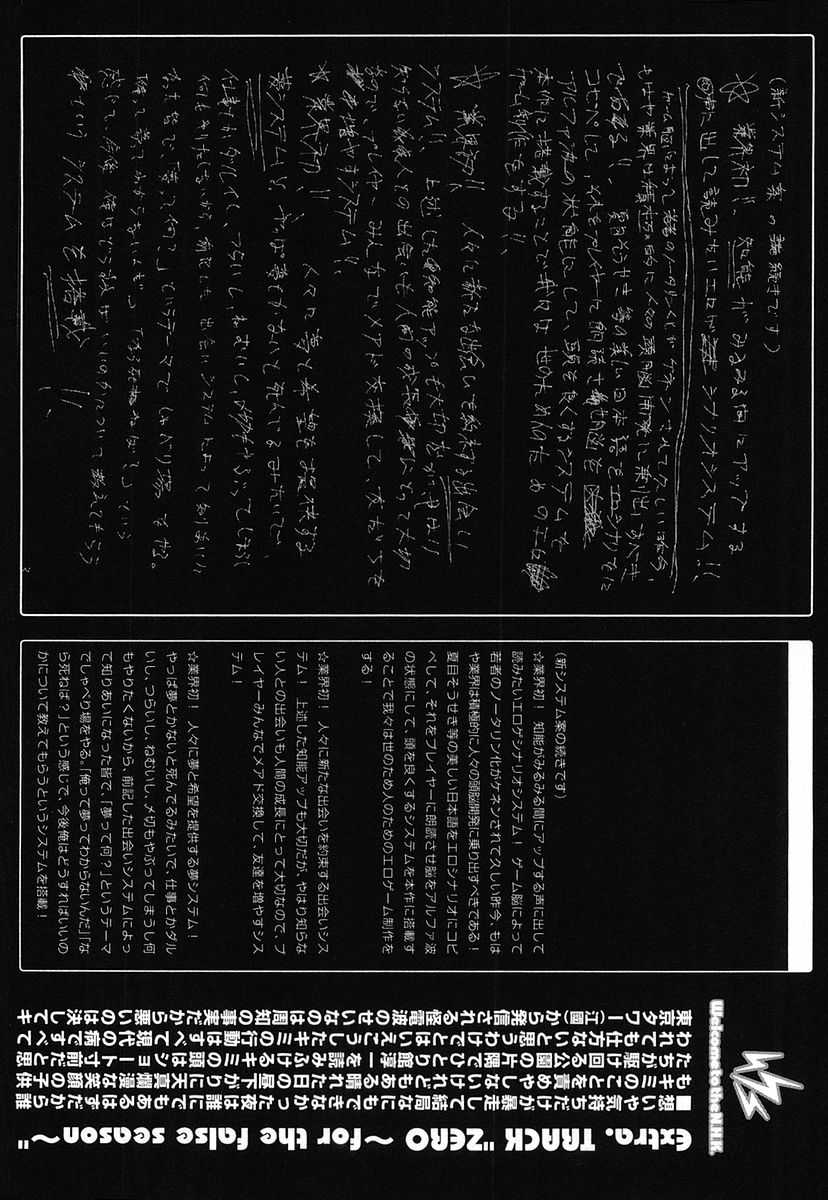 (新システム案の続きです)
☆ 業界初!! 知能がみるみる間にアップする
声に出して読みたいエロゲシナリオシステム!!
ゲーム脳によって若者のノータリン化がケネンされて久しい昨今、
もはや業界は積極的に人々の頭脳開発に乗り出すべき
である!! 夏目そうせき等の美しい日本語をエロシナリオに
コピペして、それをプレイヤーに朗読させ脳を
アルファ波の状態にして、頭を良くするシステムを
本作に搭載することで我々は世のため人のためのエロ
ゲーム制作をする!!
☆ 業界初!! 人々に新たな出会いを約束する出会い
システム!! 上述した知能アップも大切だが、やはり
知らない人との出会いも人間の成長にとって大切
なので、プレイヤーみんなでメアド交換して、友だちを
増やすシステム!!
☆ 業界初!! 人々に夢と希望を提供する
夢システム!! やっぱ夢とかないと死んでるみたいで、
仕事とかダルイし、つらいし、ねむいし、〆切もやぶってしまうし
何もやりたくないから、前記した出会いシステムによって知りあいに
なった皆で、「夢って何?」というテーマでしゃべり場をやる。
「俺って夢ってわからないんだ」「なら死ねば?」という
感じで、今後俺はどうすればいいのかについて教えてもらう
というシステムを搭載!!
(新システム案の続きです)
☆業界初！ 知能がみるみる間にアップする声に出して
読みたいエロゲシナリオシステム！ ゲーム脳によって
若者のノータリン化がケネンされて久しい昨今、もは
や業界は積極的に人々の頭脳開発に乗り出すべきである！
夏目そうせき等の美しい日本語をエロシナリオにコピ
ペして、それをプレイヤーに朗読させ脳をアルファ波
の状態にして、頭を良くするシステムを本作に搭載す
ることで我々は世のため人のためのエロゲーム制作を
する！
☆業界初！ 人々に新たな出会いを約束する出会いシス
テム！ 上述した知能アップも大切だが、やはり知らな
い人との出会いも人間の成長にとって大切なので、プ
レイヤーみんなでメアド交換して、友達を増やすシス
テム！
☆業界初！ 人々に夢と希望を提供する夢システム！
やっぱ夢とかないと死んでるみたいで、仕事とかダル
いし、つらいし、ねむいし、〆切もやぶってしまうし何
もやりたくないから、前記した出会いシステムによっ
て知りあいになった皆で、「夢って何？」というテーマ
でしゃべり場をやる。「俺って夢ってわからないんだ」「な
ら死ねば？」という感じで、今後俺はどうすればいいの
かについて教えてもらうというシステムを搭載！
extra. TRACK "ZERO 〜for the false season〜"
■想いや気持ちだけが暴走して結局なにもできなかった夜は誰にでもあるはずだから誰
もキミのことを責めやしないけれどもある晴れた日の昼下がりに天真爛漫な笑顔の子供
たちが駆け回る公園の片隅でひとり館淳一を読みふけるキミの頭はショート寸前だと思
われても仕方ないと思うわけでとはいえこうしたキミの行動はすべて現代の病ですべて
東京タワー(江國)から発信される怪電波のせいなのは周知の事実だから悪いのは決してキ
Welcome to the N.H.K.